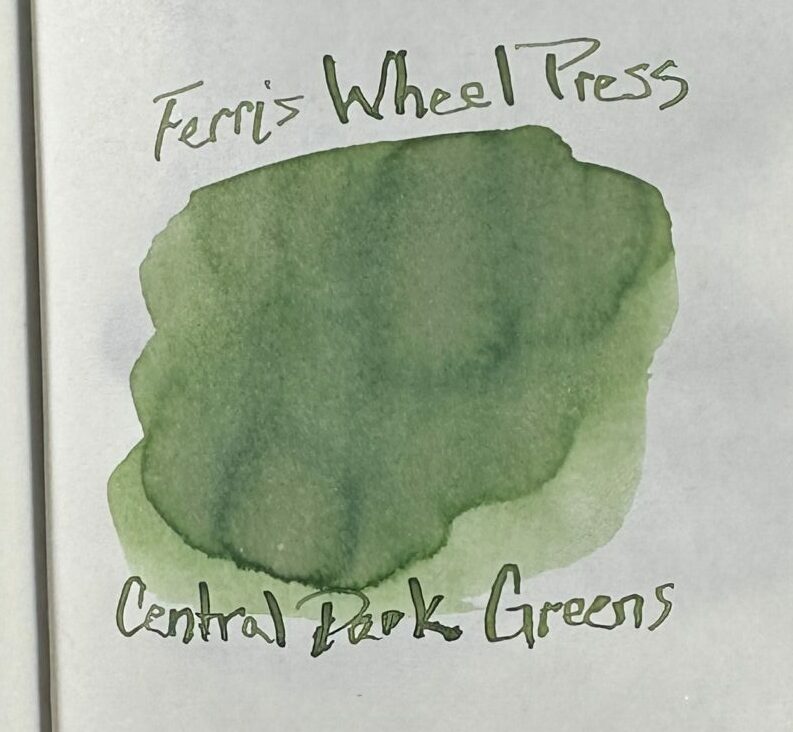 Ferris Wheel Press
Central Park Greens